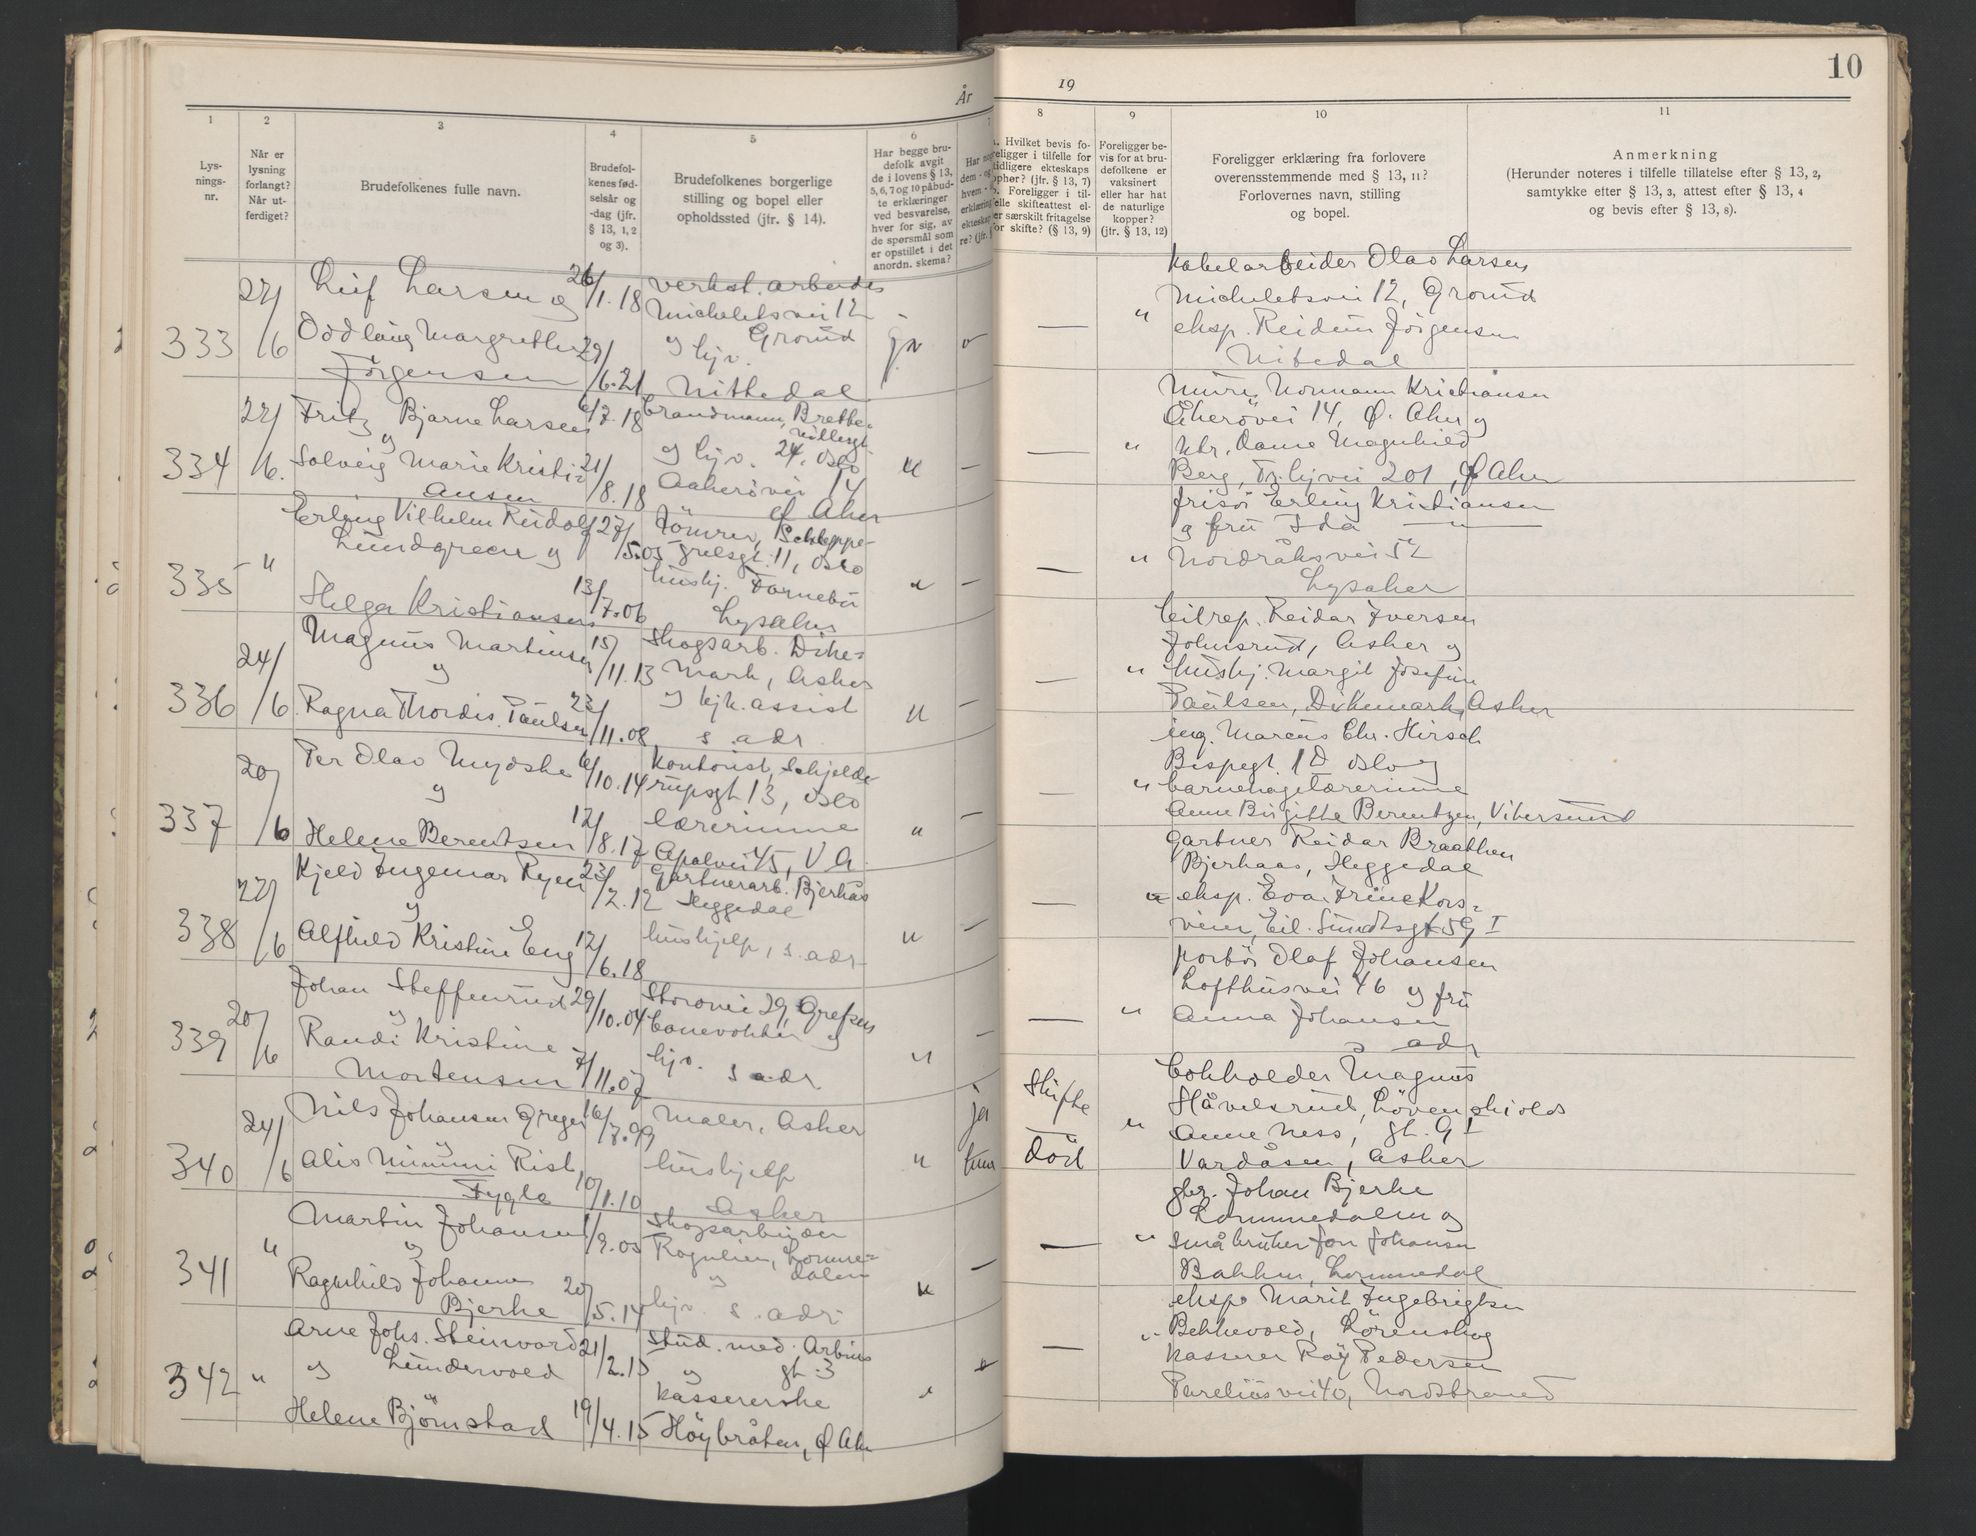 År
19
10
1
2
3
4
5
6
7
8
9
10
11
Lys-
nings-
nr.
Når er
lysning
forlangt?
Når ut-
ferdiget?
Brudefolkenes fulle navn.
Brudefol-
kenes fød-
selsår og
-dag (jfr.
§ 13, 1, 2
og 3).
Brudefolkenes borgerlige
stilling og bopel eller
opholdssted (jfr. § 14).
Har begge bru-
defolk avgit
de i lovens § 13,
5, 6, 7 og 10 påbud-
te erklæringer
ved besvarelse,
hver for sig, av
de spørsmål som
er opstillet i det
anordn. skema?
Hvilket bevis fo-
religger i tilfelle for
tidligere ekteskaps
opher? (jfr. § 13, 7)
Foreligger i til-
felle skifteattest el-
er særskilt fritagelse
for skifte? (§ 13, 9)
Foreligger be-
vis for at bru-
defolkene er
vaksinert
eller har hat
de naturlige
kopper?
(jfr. § 13, 12)
Foreligger erklæring fra forlovere
overensstemmende med § 13, 11?
Forlovernes navn, stilling
og bopel.
Anmerkning
(Herunder noteres i tilfelle tillatelse efter § 13, 2,
samtykke efter § 13, 3, attest efter § 13, 4
og bevis efter § 13, 8).
333
22/6
Leif Larsen og
26/1.18
verkst. arbeider
Micheletsvei 12
Grorud
Oddlaug Margrethe
Jörgensen
29/6.21
og hjv.
Nittedal
ja
Kabelarbeider Olav Larsen
Micheletsvei 12, Grorud
eksp. Reidun Jörgensen
Nitedal
334
22/6.
Fritz Bjarne Larsen
og
6/7.18
brandmann,
24, Oslo
Solveig Marie Kristi-
ansen
21/8.18
og hjv.
Aakerövei 14
Ø Aker
Murer Normann Kristiansen
Åkerövei 14, Ø. Aker og
Ktr. dame Magnhild
Berg, 201, Ø Aker
335
"
Erling Vilhelm Rudolf
Lundgreen og
27/5.05
Tömrer, Schleppe-
grelsgt. 11, Oslo
Helga Kristiansen
13/7.06
hushj. Fornebu
Lysaker
frisör Erling Kristiansen
og fru Ida — " —
Nordråksvei 52
Lysaker
336
24/6
Magnus Martinsen
og
15/11.13
Skogsarb. Dike-
mark, Asker
Ragna Thordis Paulsen
23/11.08
og kjk. assist
s. adr
Reidar Iversen
Johnsrud, Asker og
hushj. Margit Josefine
Paulsen, Dikemark, Asker
337
20/6
Per Olav Mydske
og
6/10.14
Kontorist, Schjelde-
rupsgt 13, Oslo
Helene Berentsen
12/8.17
lærerinne
Apalvei 45, V A.
ing. Marcus Chr. Hirsch
Bispegt. 1 D Oslo og
barnehagelærerinne
Anne Birgitte Berentzen, Vikersund
338
22/6
Kjeld Ingemar Ryen
og
23/2.12
Gartnerarb. Bjerkås
Heggedal
Alfhild Kristine Eng
12/6.18
hushjelp, s. adr
Gartner Reidar Braathen
Bjerkaas, Heggedal
eksp. Eva Trine Kors-
veien, Eil. Sundtsgt 59 I
339
20/6
Johan Steffenrud
og
29/10.04
Storovei 29, Grefsen
banevokter og
Randi Kristine
Mortensen
7/11.07
hjv. s adr
portör Olaf Johansen
Lofthusvei 46 og fru
Anna Johansen
s adr
340
24/6
Nils Johansen Greger
og
16/7.99
Maler, Asker
ja
Skifte
Alis Mimmi Rist
Tygle
10/1.10
hushjelp
Asker
död
Bokholder Magnus
Håvelsrud, Lövenskiolds
gt. 9 I
Anne Ness,
Vardåsen, Asker
341
"
Martin Johansen
og
1/9.05
Skogsarbeider
Lomme-
dalen
Ragnhild Johanne
Bjerke
20/5.14
og
hjv. s. adr.
gbr. Johan Bjerke
Lommedalen og
småbruker Jon Johansen
Bakken, Lommedal
342
"
Arne Johs. Steinvord
og Lundervold
21/2.15
stud. med. Arbins
gt. 3
Helene Björnstad
19/4.15
og
kassererske
Höybråten, Ø Aker
eksp. Marit Ingebrigtsen
Bekkevold, Lörenskog
kasserer Roy Pedersen
40, Nordstrand